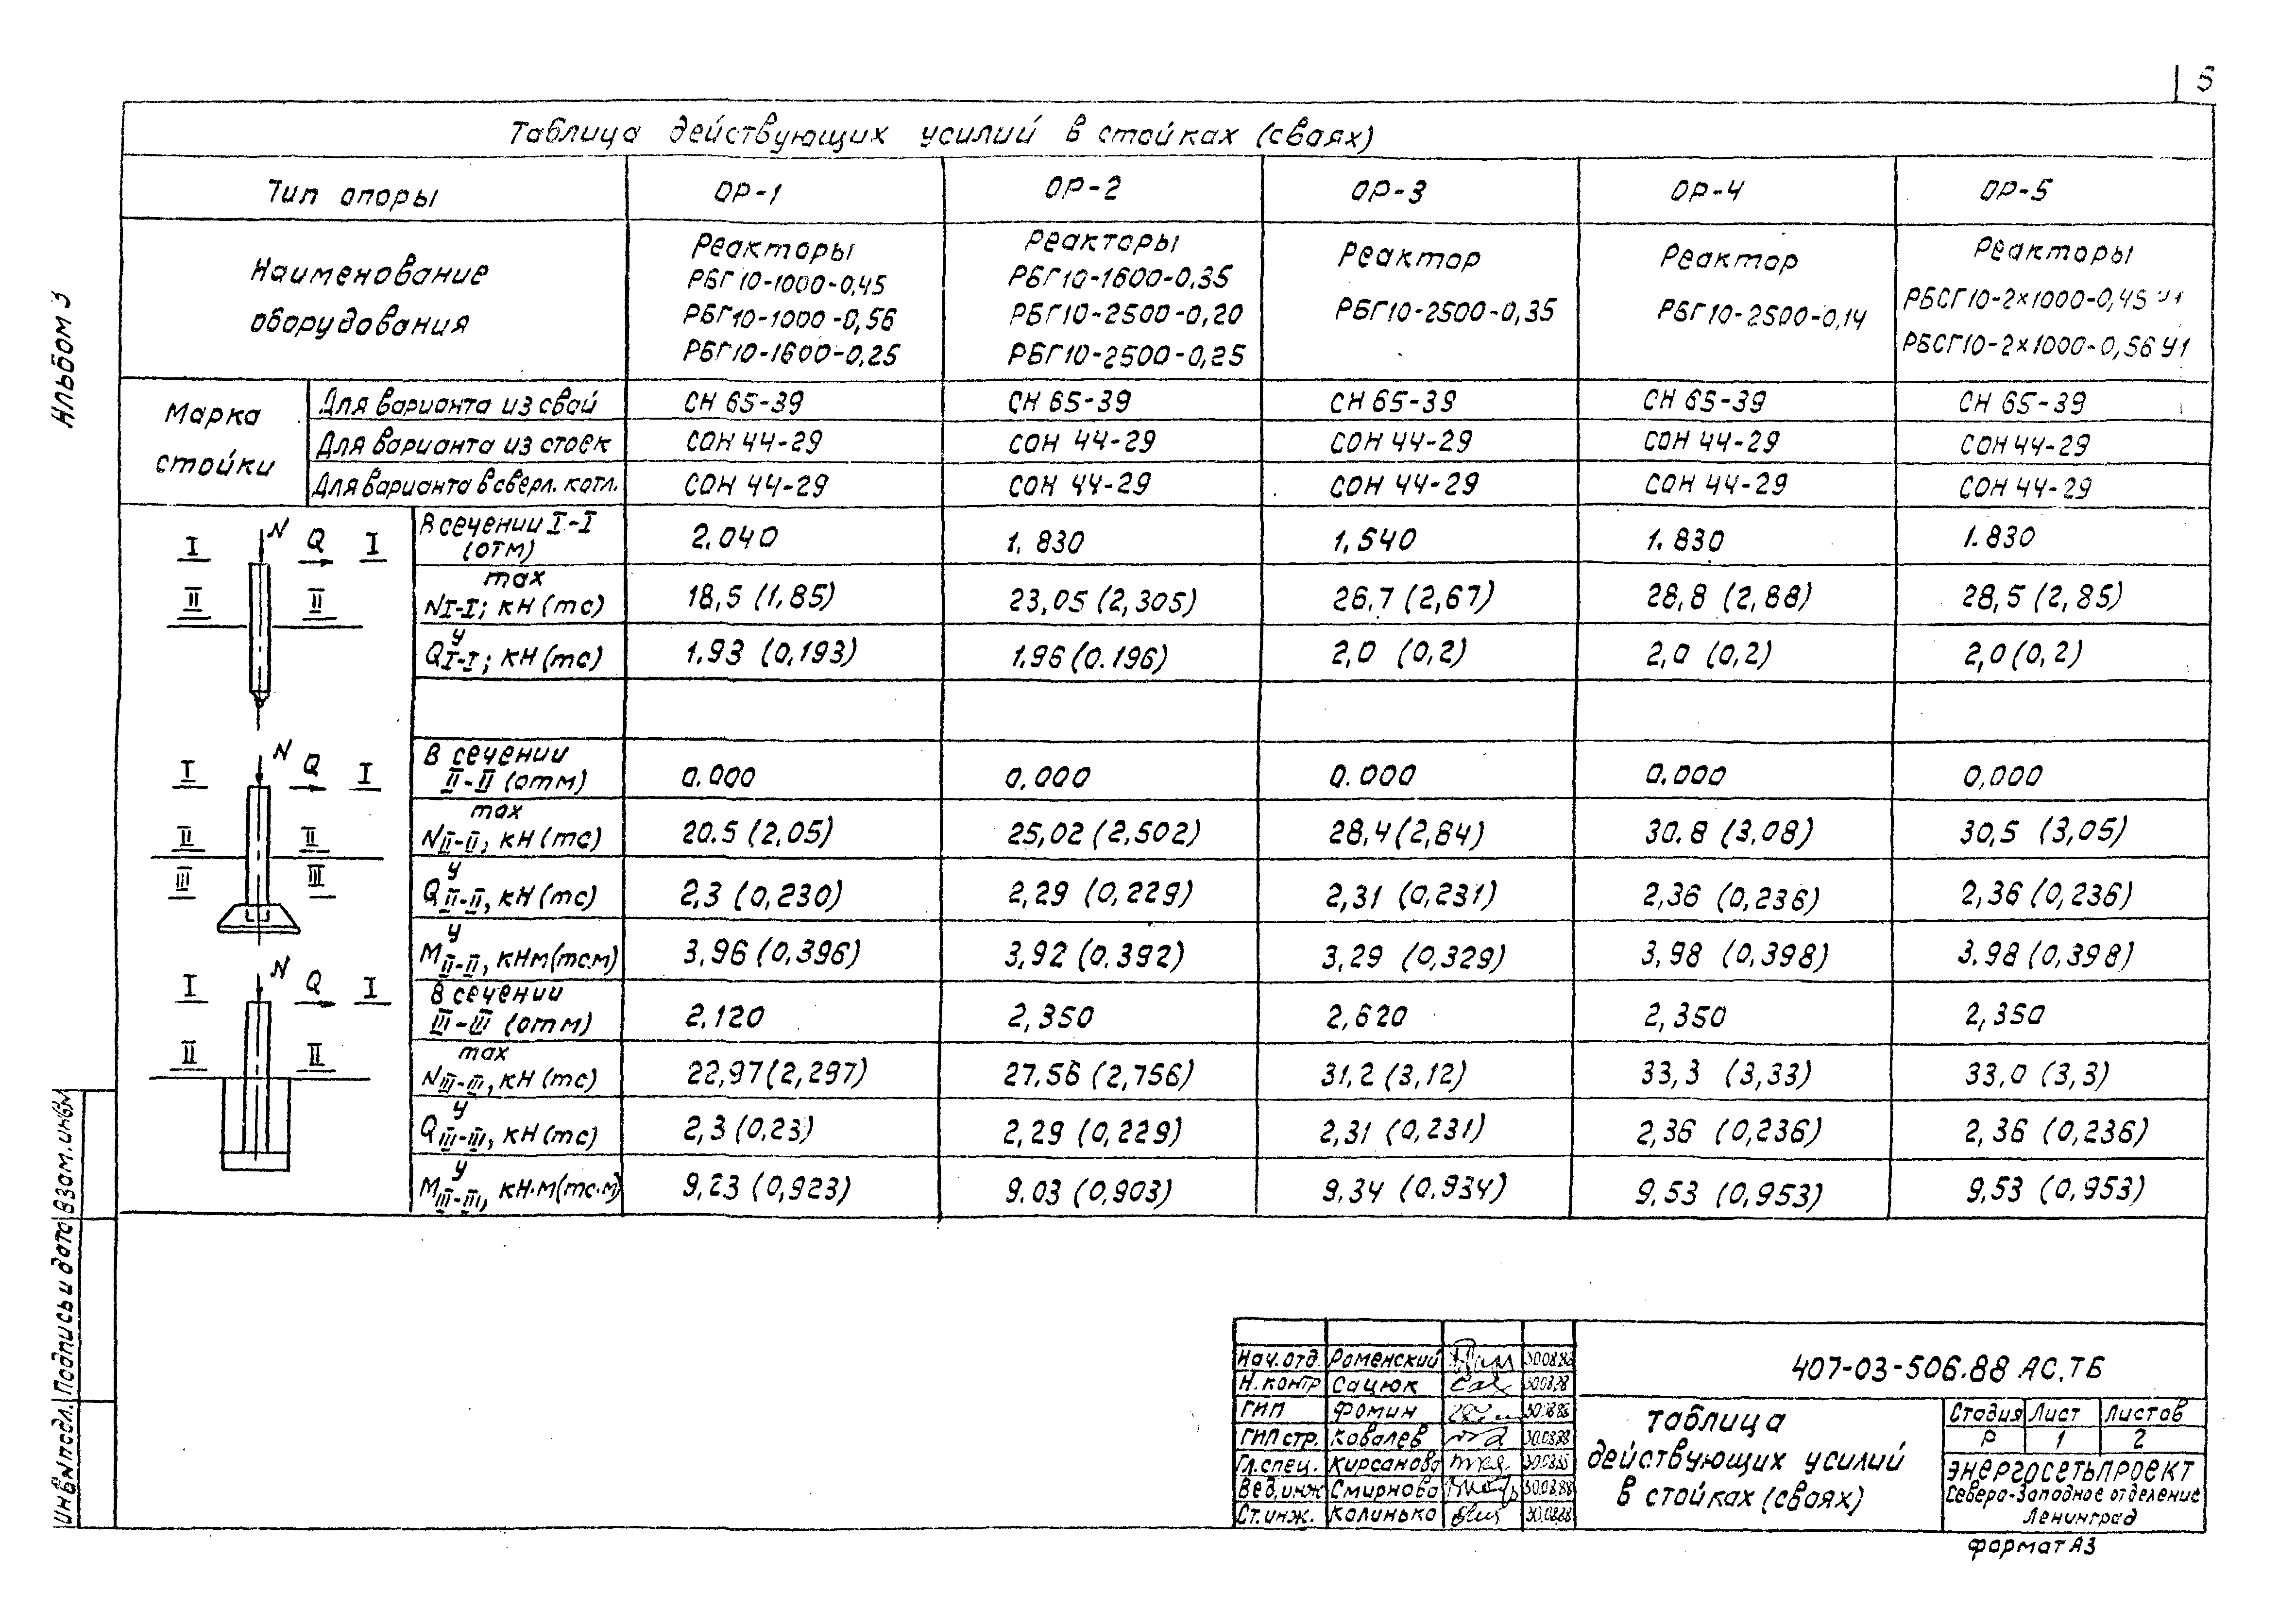 5
Альбом 3
Таблица действующих усилий в стойках (сваях)
Тип опоры ОР-1 ОР-2 ОР-3 ОР-4 ОР-5
Наименование оборудования
Реакторы
РБГ10-1000-0,45
РБГ10-1000-0,56
РБГ10-1600-0,25
Реакторы
РБГ10-1600-0,35
РБГ10-2500-0,20
РБГ10-2500-0,25
Реактор
РБГ10-2500-0,35
Реактор
РБГ10-2500-0,14
Реакторы
РБСГ10-2×1000-0,45 У1
РБСГ10-2×1000-0,56 У1
Марка стойки
Для варианта из свай СН 65-39 СН 65-39 СН 65-39 СН 65-39 СН 65-39
Для варианта из стоек СОН 44-29 СОН 44-29 СОН 44-29 СОН 44-29 СОН 44-29
Для варианта в сверл. котл. СОН 44-29 СОН 44-29 СОН 44-29 СОН 44-29 СОН 44-29
N
I Q I
II II
В сечении I-I (отм) 2.040 1.830 1,540 1.830 1.830
max
N I-I; кН (тс) 18,5 (1,85) 23,05 (2,305) 26,7 (2,67) 28,8 (2,88) 28,5 (2,85)
у
Q I-I; кН (тс) 1.93 (0,193) 1.96 (0.196) 2,0 (0,2) 2,0 (0,2) 2,0 (0,2)
N
I Q I
II II
III III
В сечении II-II (отм) 0.000 0,000 0.000 0.000 0,000
max
N II-II, кН (тс) 20.5 (2,05) 25,02 (2,502) 28,4 (2,84) 30.8 (3,08) 30,5 (3,05)
у
Q II-II, кН (тс) 2,3 (0,230) 2,29 (0,229) 2,31 (0,231) 2,36 (0,236) 2,36 (0,236)
у
М II-II, кНм (тс.м) 3,96 (0,396) 3,92 (0.392) 3,29 (0,329) 3,98 (0,398) 3.98 (0,398)
N
I Q I
II II
В сечении III-III (отм) 2,120 2,350 2,620 2,350 2,350
max
N III-III, кН (тс) 22,97 (2,297) 27.56 (2,756) 31,2 (3,12) 33,3 (3,33) 33,0 (3,3)
у
Q III-III, кН (тс) 2,3 (0,23) 2,29 (0,229) 2,31 (0,231) 2,36 (0,236) 2,36 (0,236)
у
М III-III, кН·м (тс·м) 9,23 (0,923) 9.03 (0,903) 9,34 (0.934) 9,53 (0,953) 9,53 (0,953)
Инв№ подл. Подпись и дата Взам. инв№
Нач. отд. Роменский 30.08.88
Н. контр Сацюк 30.08.88
ГИП Фомин 30.08.88
ГИП стр. Ковалев 30.08.88
Гл. спец. Кирсанова 30.08.88
Вед. инж Смирнова 30.08.88
Ст. инж. Калинько 30.08.88
407-03-506.88 АС.ТБ
Таблица
действующих усилий
в стойках (сваях)
Стадия Лист Листов
Р 1 2
Энергосетьпроект
Северо-Западное отделение
Ленинград
формат А3